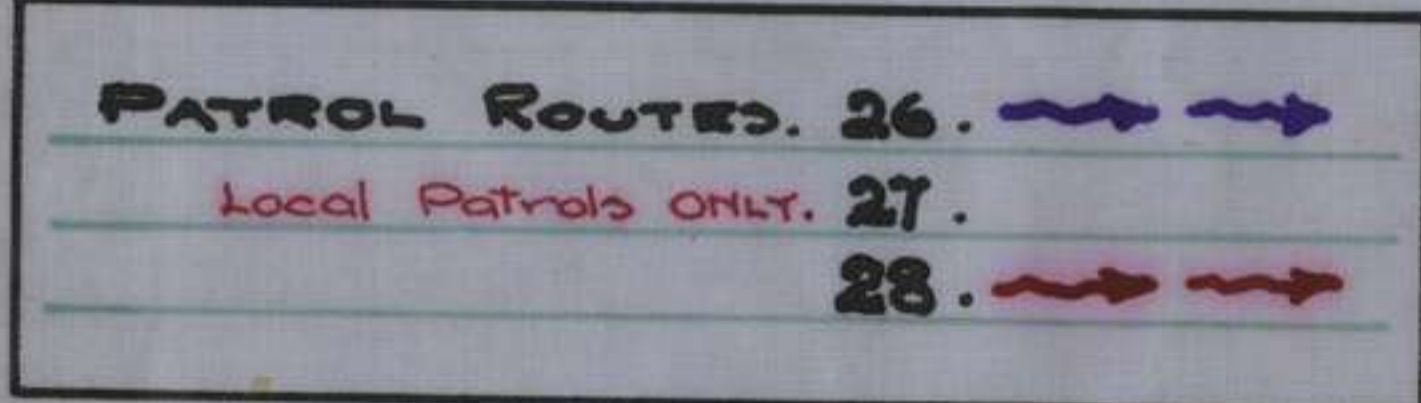 PATROL ROUTES. 26.
Local Patrols ONLY. 27.
28.